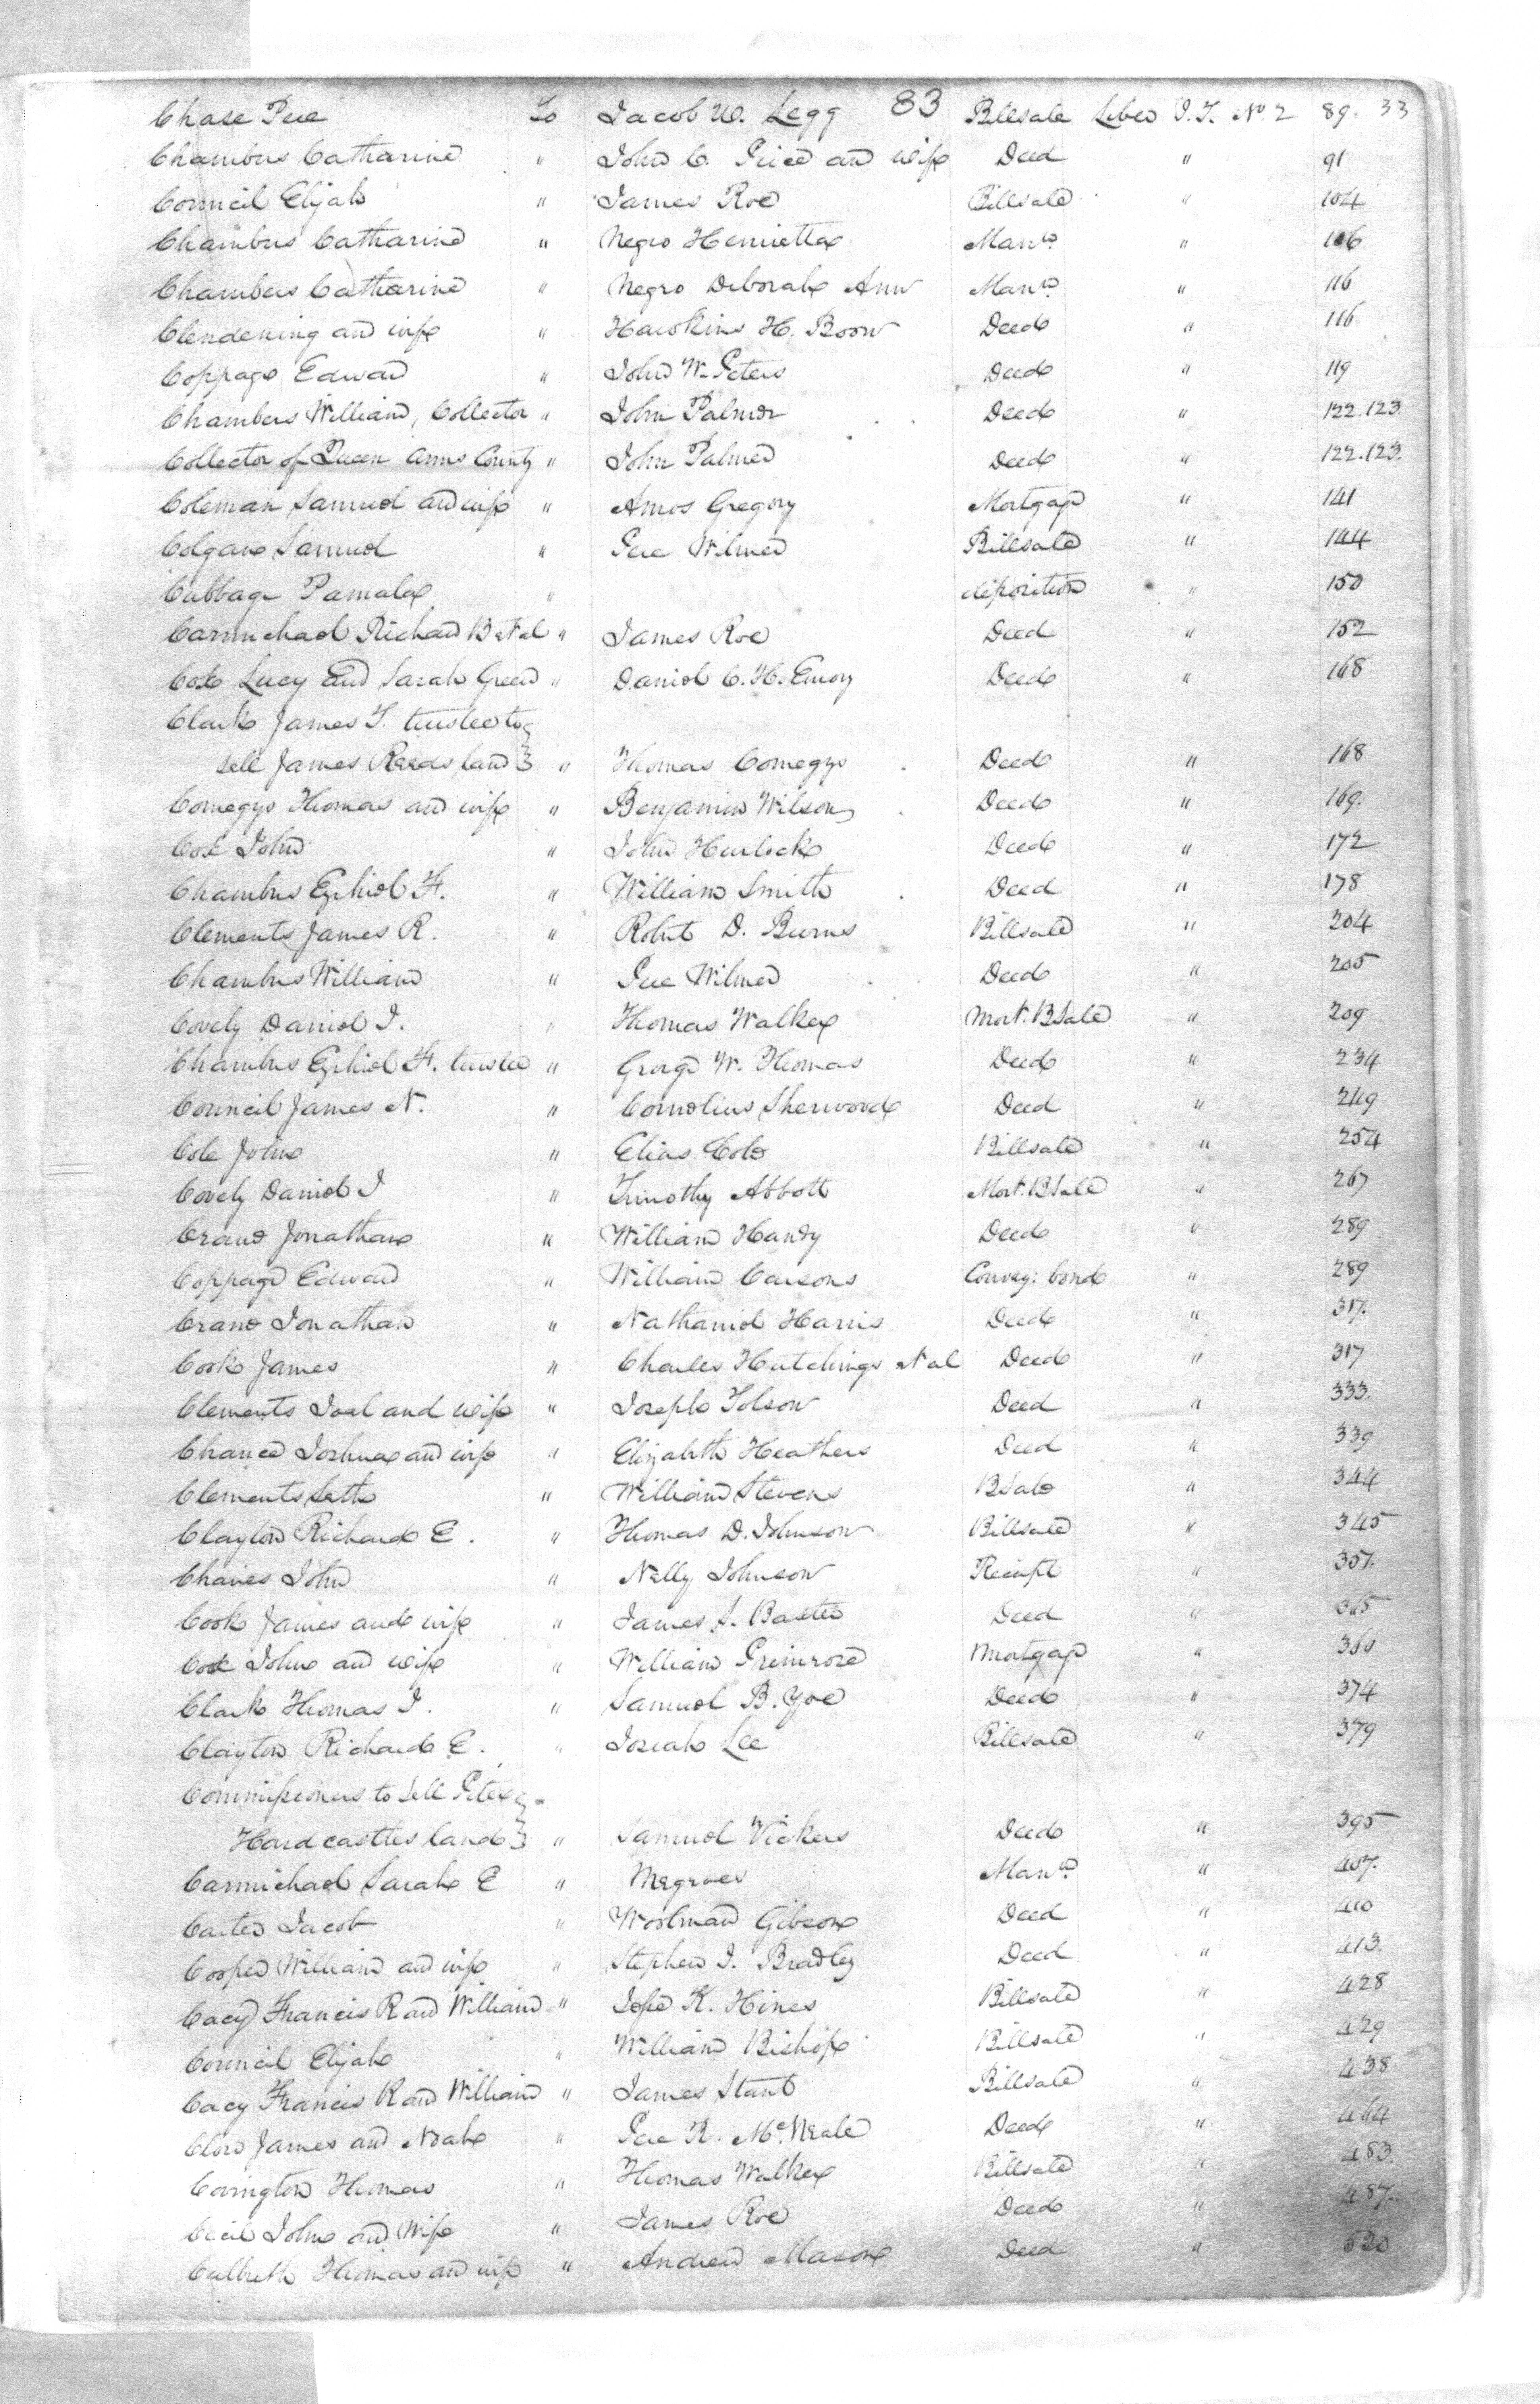 83
Chase Pere To Jacob W. Legg Billsale Liber J.T. No. 2 89. 33
Chambers Catharine " John C. Price and wife Deed " 91
Council Elijah " James Roe Billsale " 104
Chambers Catharine " Negro Henrietta Mann. " 106
Chambers Catharine " Negro Deborah Ann Mann. " 116
Clendening and wife " Hawkins H. Boon Deed " 116
Coppage Edward " John W. Peters Deed " 119
Chambers William, Collector " John Palmer Deed " 122.123.
Collector of Queen Anns County " John Palmer Deed " 122.123.
Coleman Samuel and wife " Amos Gregory Mortgage " 141
Colgan Samuel " Pere Wilmer Billsale " 144
Cabbage Pamala " deposition " 150
Carmichael Richard B et al " James Roe Deed " 152
Cox Lucy and Sarah Green " Daniel C. H. Emory Deed " 168
Clark James T. trustee to }
sell James Reeds land } " Thomas Comegys Deed " 168
Comegys Thomas and wife " Benjamin Wilson Deed " 169.
Cox John " John Hurlock Deed " 172
Chambers Ezekiel F. " William Smith Deed " 178
Clements James R. " Robert D. Burns Billsale " 204
Chambers William " Pere Wilmer Deed " 205
Covely Daniel J. " Thomas Walker Mort. BSale " 209
Chambers Ezekiel F. trustee " George W. Thomas Deed " 234
Council James N. " Cornelius Sherwood Deed " 249
Cole John " Elias Cole Billsale " 254
Covely Daniel J " Timothy Abbott Mort. BSale " 267
Crane Jonathan " William Handy Deed " 289
Coppage Edward " William Carsons Convey: bond " 289
Crane Jonathan " Nathaniel Harris Deed " 317.
Cook James " Charles Hutchings et al Deed " 317
Clements Joel and wife " Joseph Tolson Deed " 333.
Chance Joshua and wife " Elizabeth Heathers Deed " 339
Clements Seth " William Stevens BSale " 344
Clayton Richard E. " Thomas D. Johnson Billsale " 345
Chaires John " Nelly Johnson Receipt " 357.
Cook James and wife " James S. Baxter Deed " 365
Cox John and wife " William Primrose Mortgage " 366
Clark Thomas J. " Samuel B. Yoe Deed " 374
Clayton Richard E. " Josiah Lee Billsale " 379
Commissioners to sell Peter }
Hardcastles land } " Samuel Vickers Deed " 395
Carmichael Sarah E " Negroes Mann. " 407.
Carter Jacob " Woolman Gibson Deed " 410
Cooper William and wife " Stephen J. Bradley Deed " 413.
Cacy Francis R and William " Jesse K. Hines Billsale " 428
Council Elijah " William Bishop Billsale " 429
Cacy Francis R and William " James Stant Billsale " 438
Clow James and Noah " Pere R. McNeale Deed " 464
Covington Thomas " Thomas Walker Billsale " 483.
Cecil John and Wife " James Roe Deed " 487.
Culbreth Thomas and wife " Andrew Mason Deed " 520